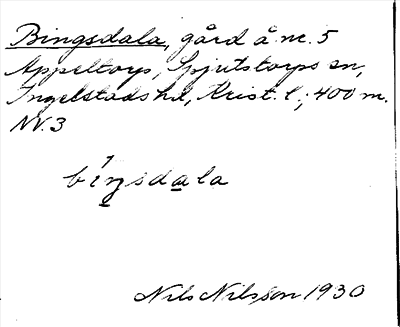 Bingsdala, gård å nr. 5
Äppeltorp, Spjutstorps sn,
Ingelstads hd, Krist. l.; 400 m.
NV. 3
bi̱ŋsda̱la
Nils Nilsson 1930